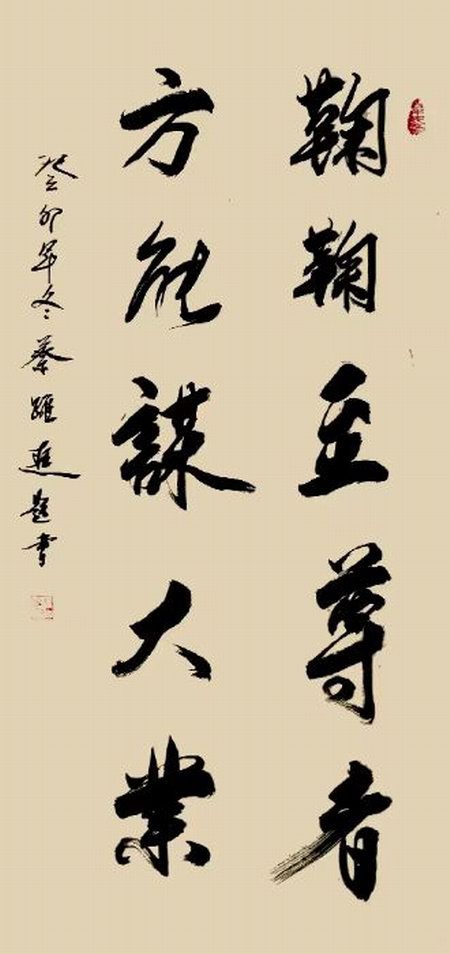 鞠鞠至尊者
方能謀大業
癸卯年冬蔡躍進題書